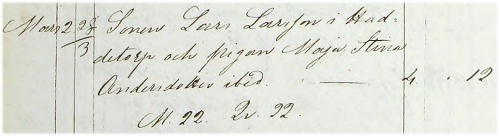 Mars 2 28/3 Sonen Lars Larsson i Had=
detorp och pigan Maja Stina
Andersdotter ibid. — 4 . 12
M. 22. Qv. 22.